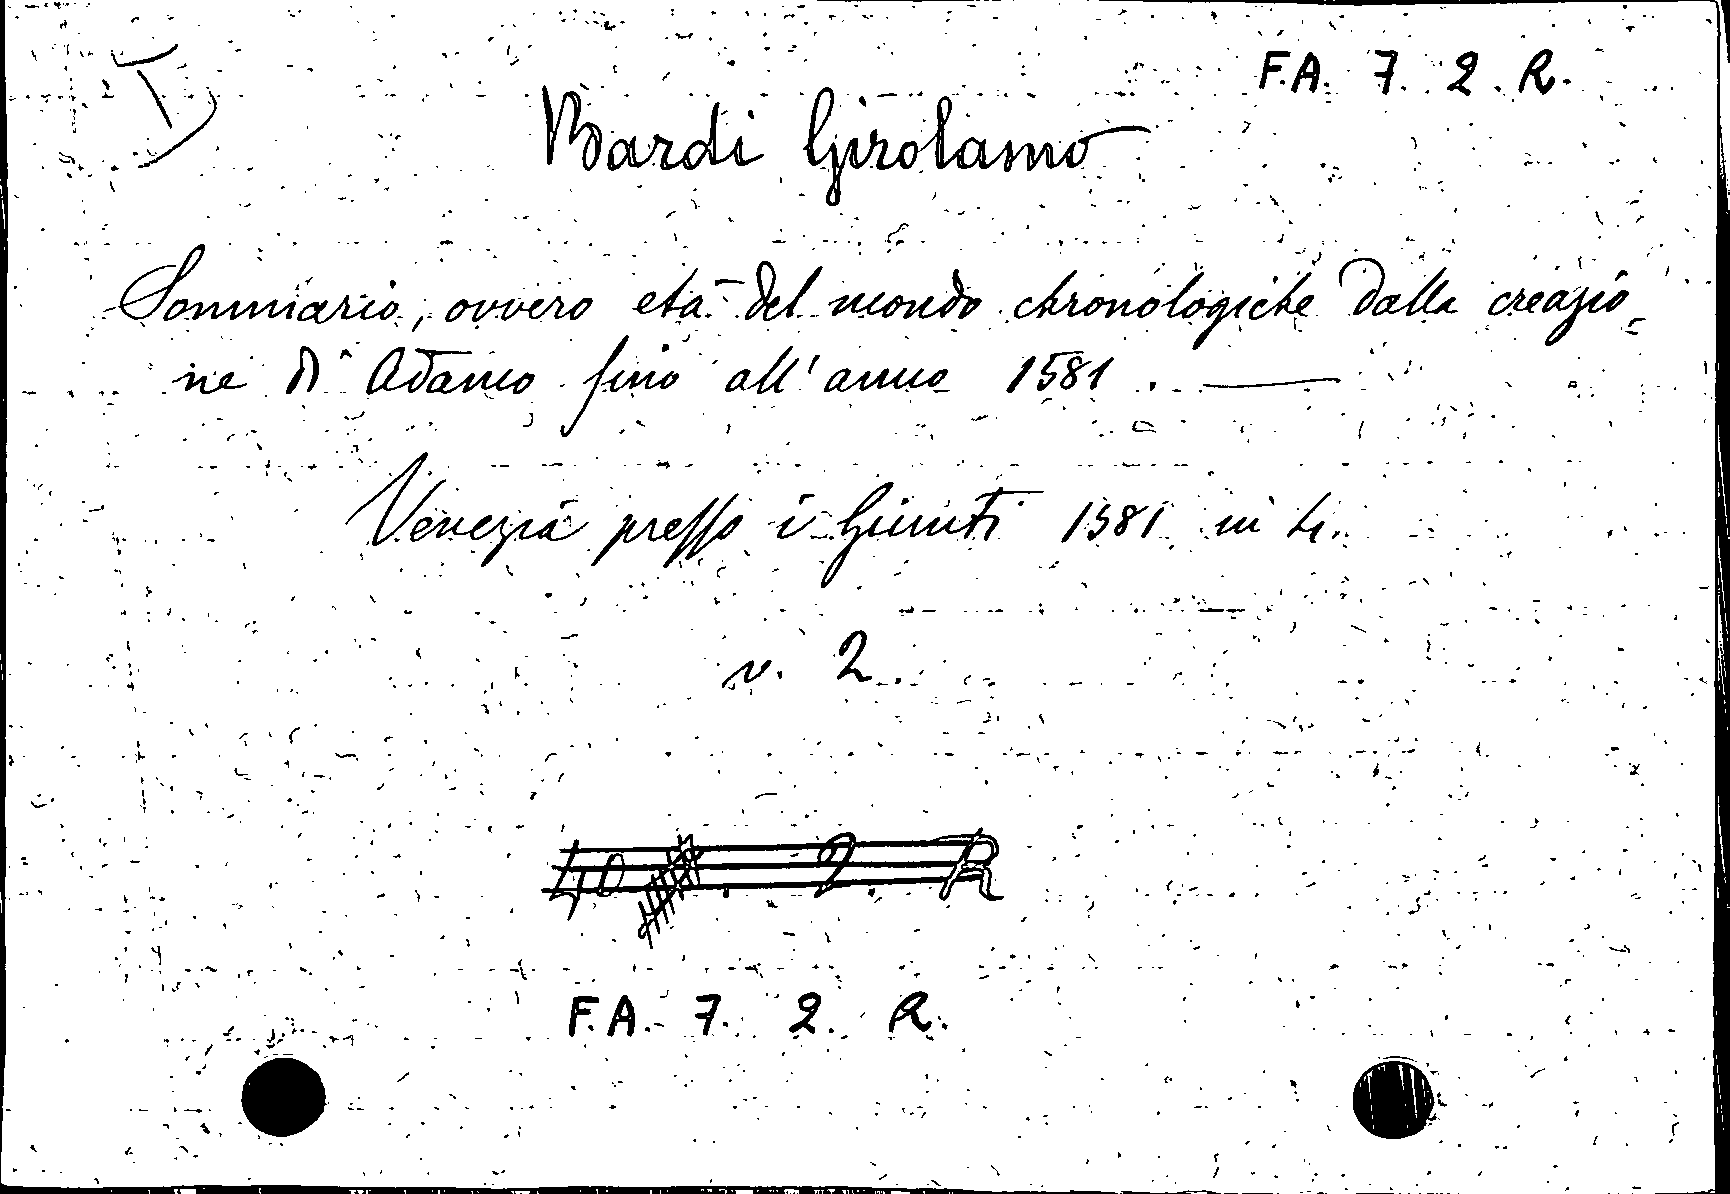 F.A. 7. 2. R.
Bardi Girolamo
Sommario, ovvero età del mondo chronologiche dalla creazio=
ne di Adamo fino all'anno 1581.
Venezia presso i Giunti 1581 in 4.
v. 2.
40 . 2. R
F.A. 7. 2. R.